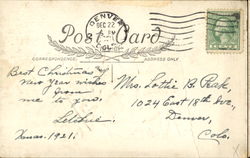 DENVER
DEC 22
COLO.
Post Card
CORRESPONDENCE
ADDRESS ONLY
Best Christmas &
New Year wishes
from
me to you.
Xmas. 1921.
Mrs. Lottie B. Peak,
1024 East 18th Ave,
Denver,
Colo.